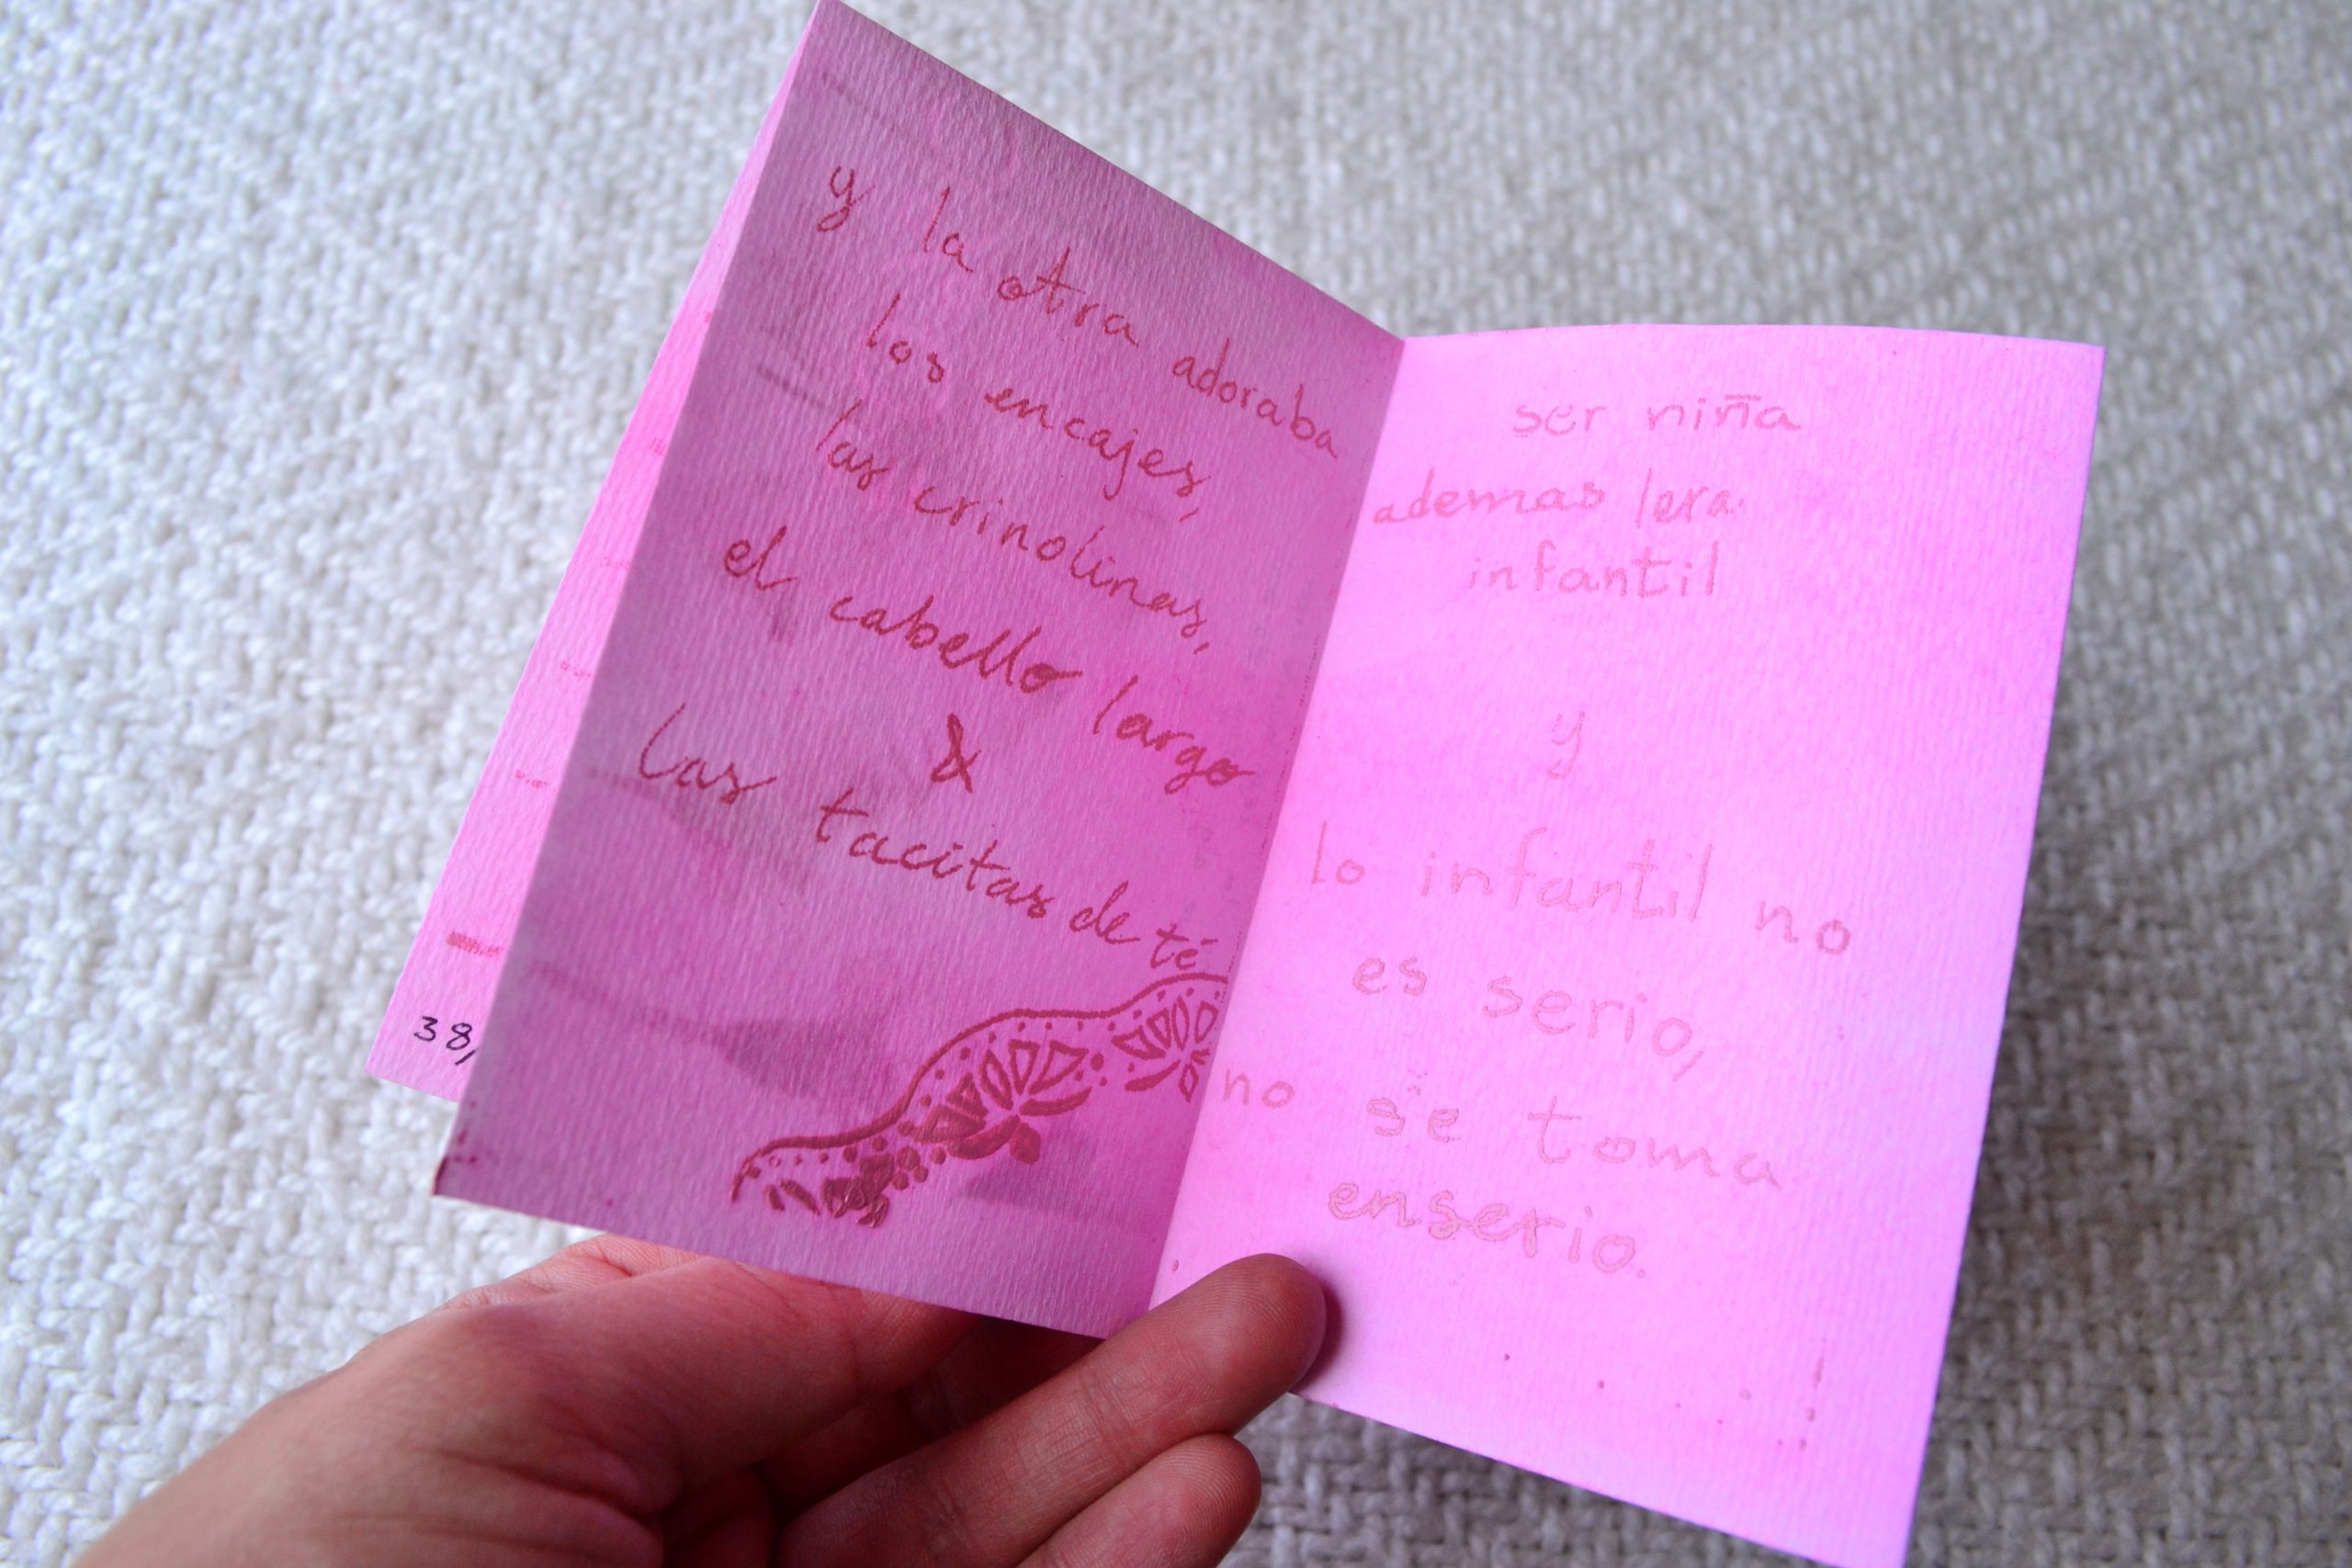 y la otra adoraba
los encajes,
las crinolinas,
el cabello largo
&
las tacitas de té
ser niña
ademas era
infantil
y
lo infantil no
es serio,
no se toma
enserio.
38,